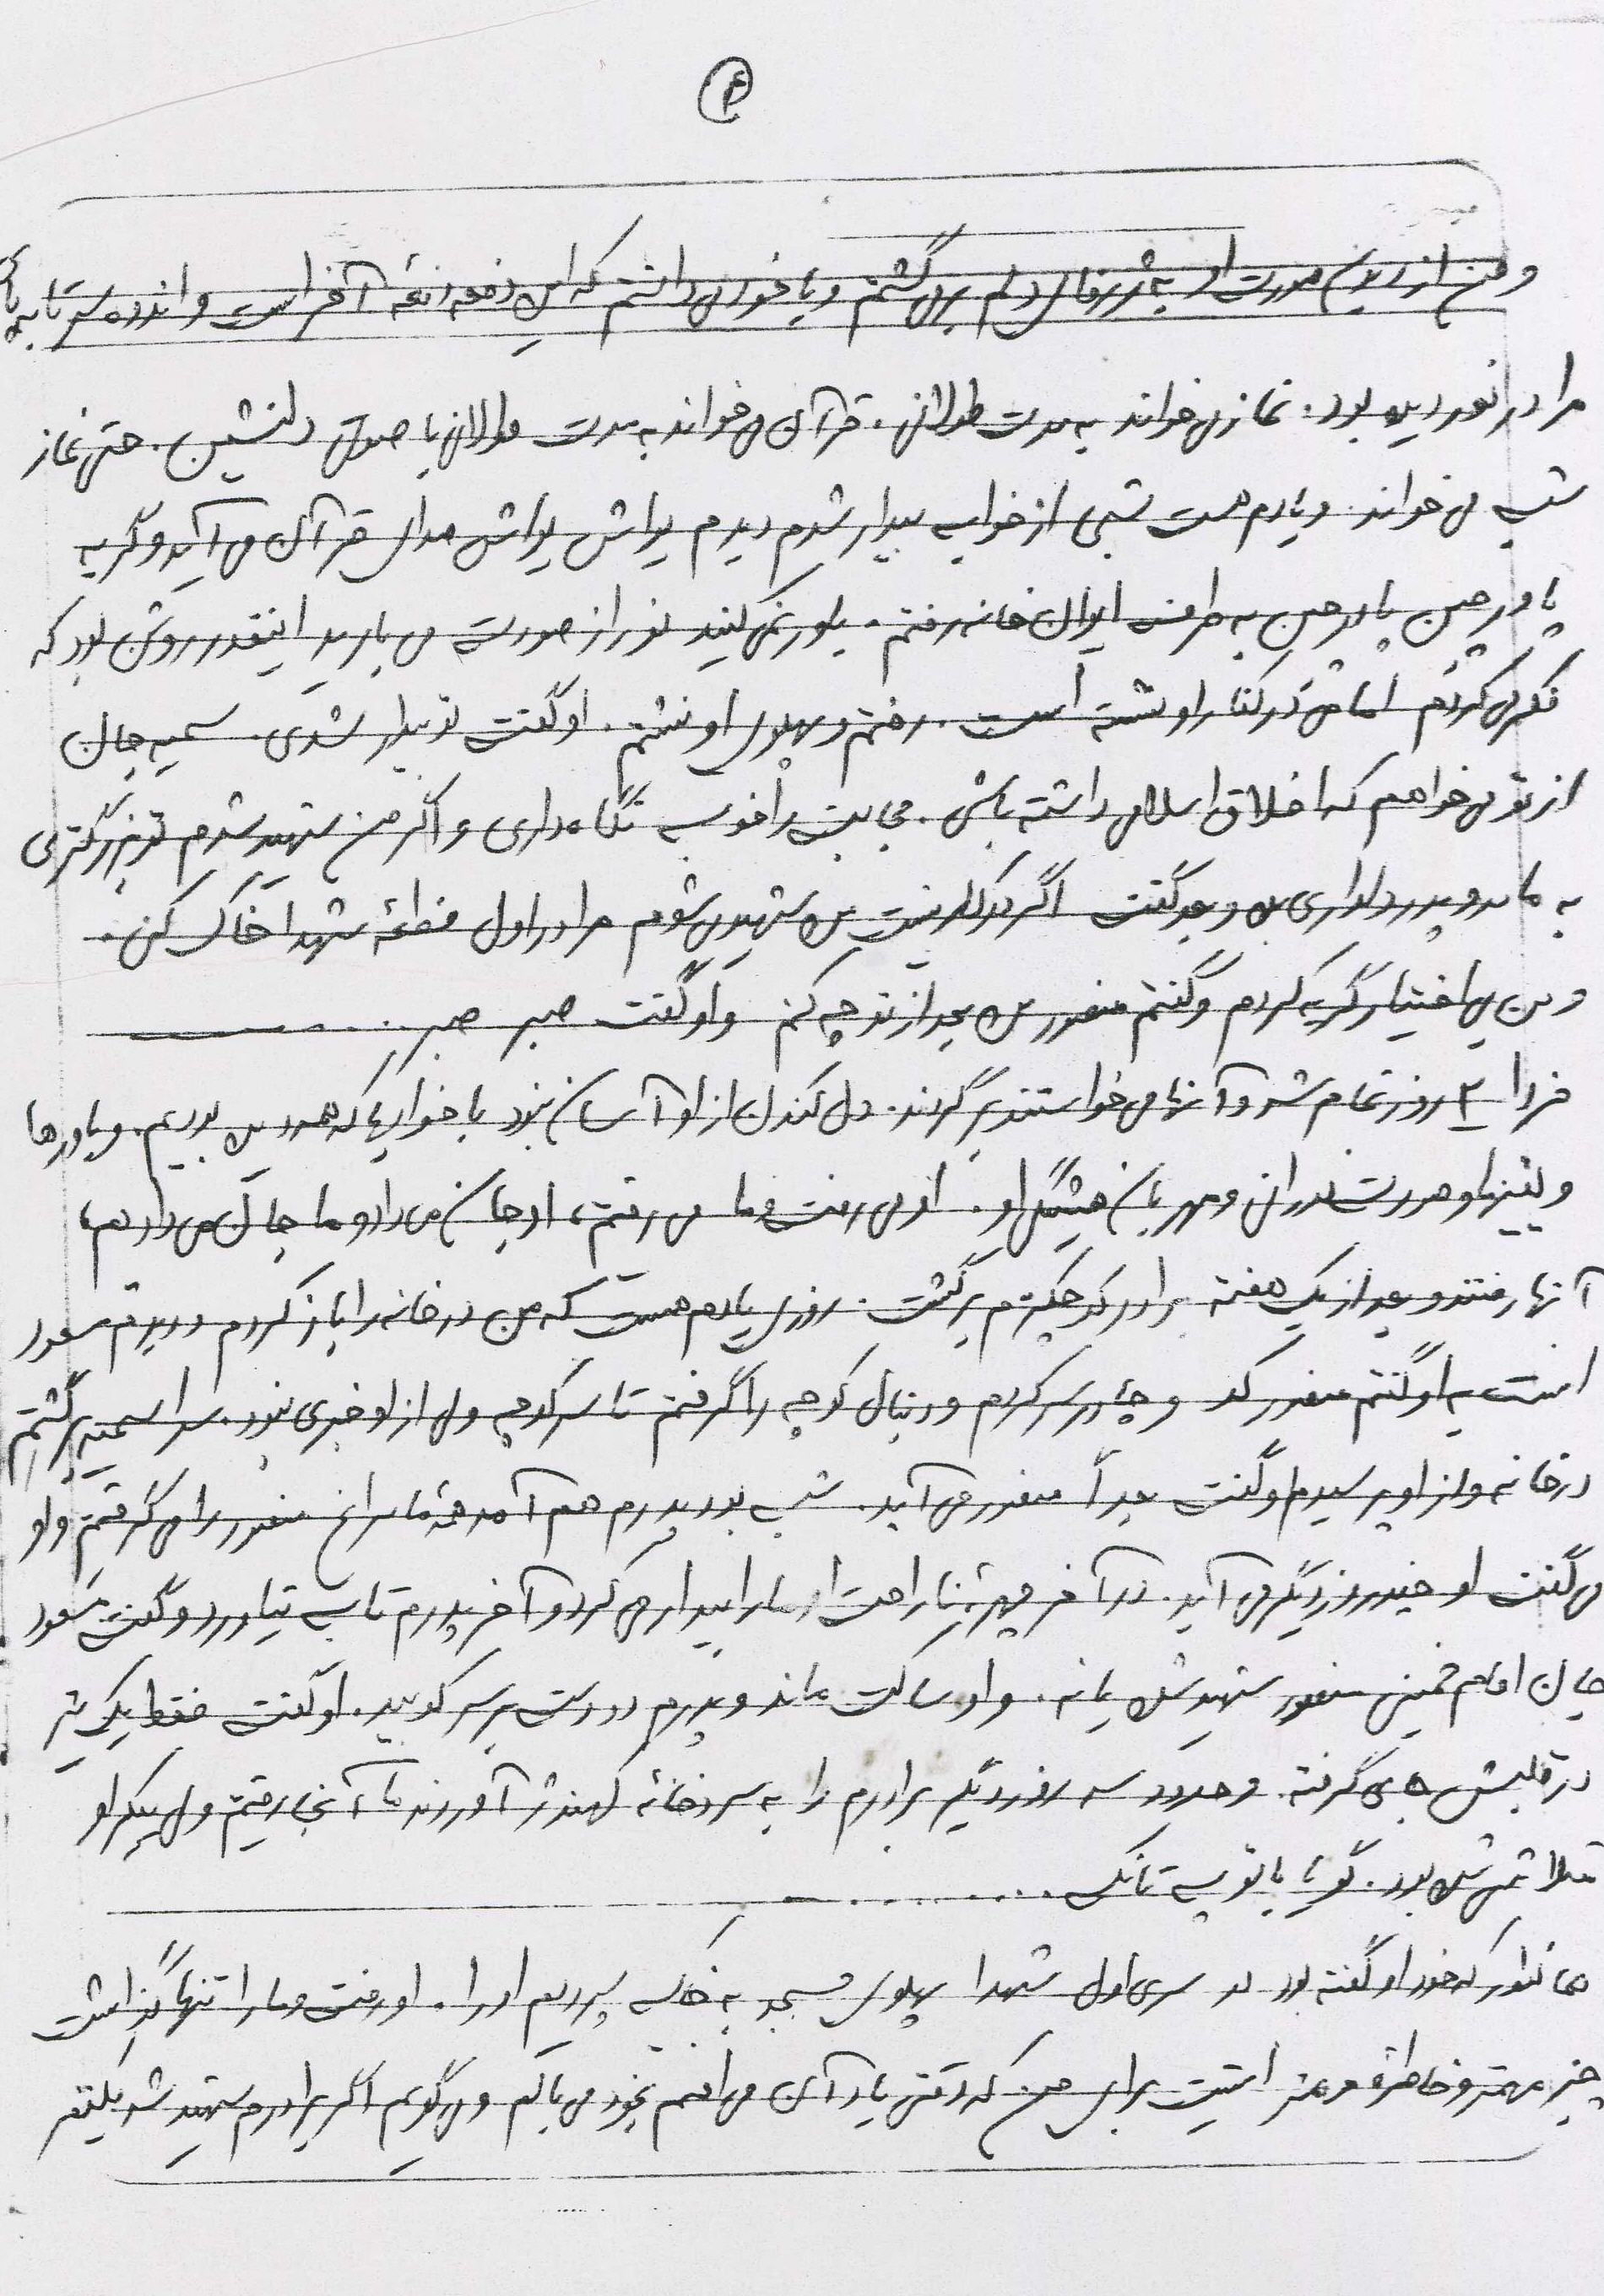 ۴
و من از دیدن صورت او به ژرفای دلم برمی گشتم و با خود می دانستم که این دفعه دفعهٔ آخر است و اندوه سر تا به پای
مرا در نوردیده بود. نماز می خواند به مدت طولانی. قرآن می خواند به مدت طولانی با صوتی دلنشین. حتی نماز
شب می خواند. و یادم هست شبی از خواب بیدار شدم دیدم یواش یواش صدای قرآن می آید و گریه
پاورچین پاورچین به طرف ایوان خانه رفتم. باور نمی کنید نور از صورت می بارید اینقدر روشن بود که
فکر می کردم امامش در کنار او نشسته است. رفتم و پهلوی او نشستم. او گفت تو بیدار شدی. سمیه جان
از تو می خواهم که اخلاق اسلامی داشته باشی. حجابت را خوب نگاه داری و اگر من شهید شدم تو بزرگتری
به مادر و پدر دلداری بده و بعد گفت اگر من شهید می شوم مرا در اول قطعهٔ شهدا خاک کن.
و من بی اختیار گریه کردم و گفتم منصور من بعد از تو چه کنم و او گفت صبر صبر ........
فردا ۳ روز تمام شد و آنها می خواستند برگردند. دل کندن از او آسان نبود با خوابهایی که همه دیده بودیم. و باورها
و یقینها و صورت نورانی و مهربان همیشگی او. او می رفت و ما می رفتیم، او جان می داد و ما جان می دادیم،
آنها رفتند و بعد از یک هفته برادر کوچکترم برگشت. روزی یادم هست که من در خانه را باز کردم و دیدم مسعود
است به او گفتم منصور کو و چادر سر کردم و دنبال کوچه را گرفتم تا سر کوچه ولی از او خبری نبود. سراسیمه برگشتم
در خانه و از او پرسیدم او گفت بعداً منصور می آید. شب بود پدرم هم آمد همه ما سراغ منصور را می گرفتیم و او
می گفت او چند روز دیگر می آید. در آخر چهره ناراحت او ما را بیدار می کرد و آخر پدرم تاب نیاورد و گفت مسعود
جان امام خمینی منصور شهید شده یا نه. و او ساکت ماند و پدرم دو دست بر سر کوبید. او گفت فقط یک تیر
در قلبش جای گرفته. و حدود سه روز دیگر برادرم را به سردخانه آوردند ما آنجا رفتیم ولی پیکر او
متلاشی شده بود. گویا با توپ تانک .........
همانطور که خود او گفته بود در سری اول شهدا پهلوی مسجد به خاک سپردیم او را. او رفت و ما را تنها گذاشت
چیز مهمتر و خاطره و رمز است برای من که وقتی یاد آن می افتم بخود می بالم و می گویم اگر برادرم شهید شد